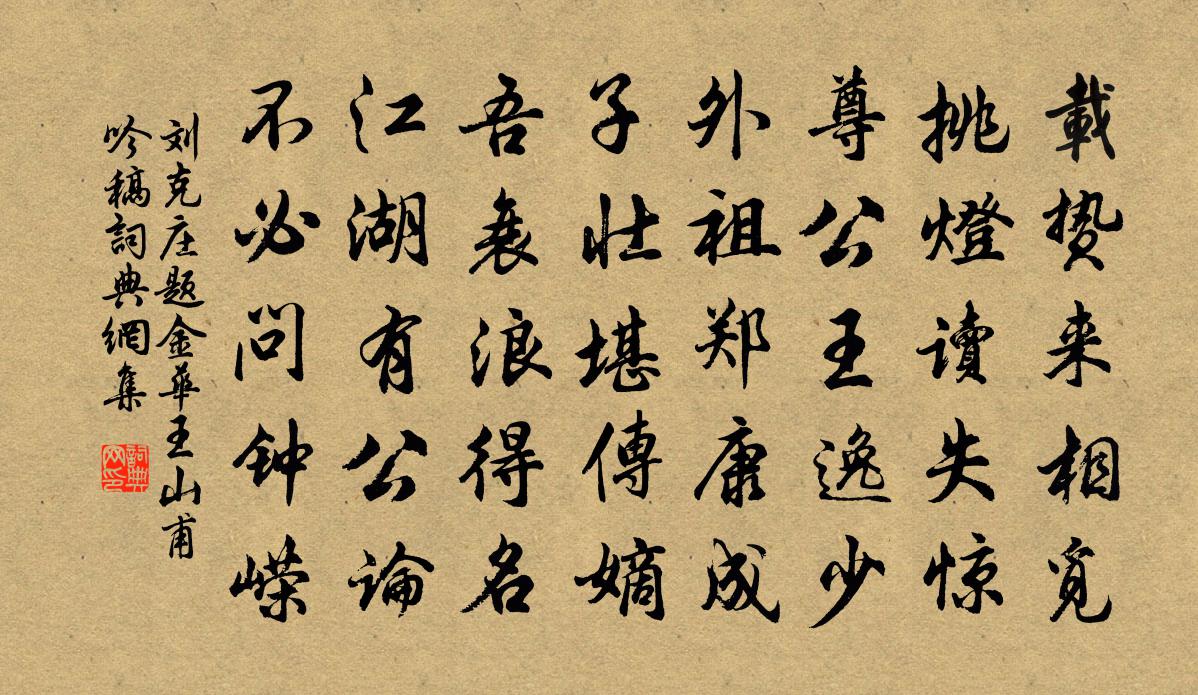 載贽来相觅
挑燈讀失惊
尊公王逸少
外祖郑康成
子壮堪傳嫡
吾衰浪得名
江湖有公論
不必问钟嵘
刘克庄题金華王山甫
吟稿詞典網集
詞典网印